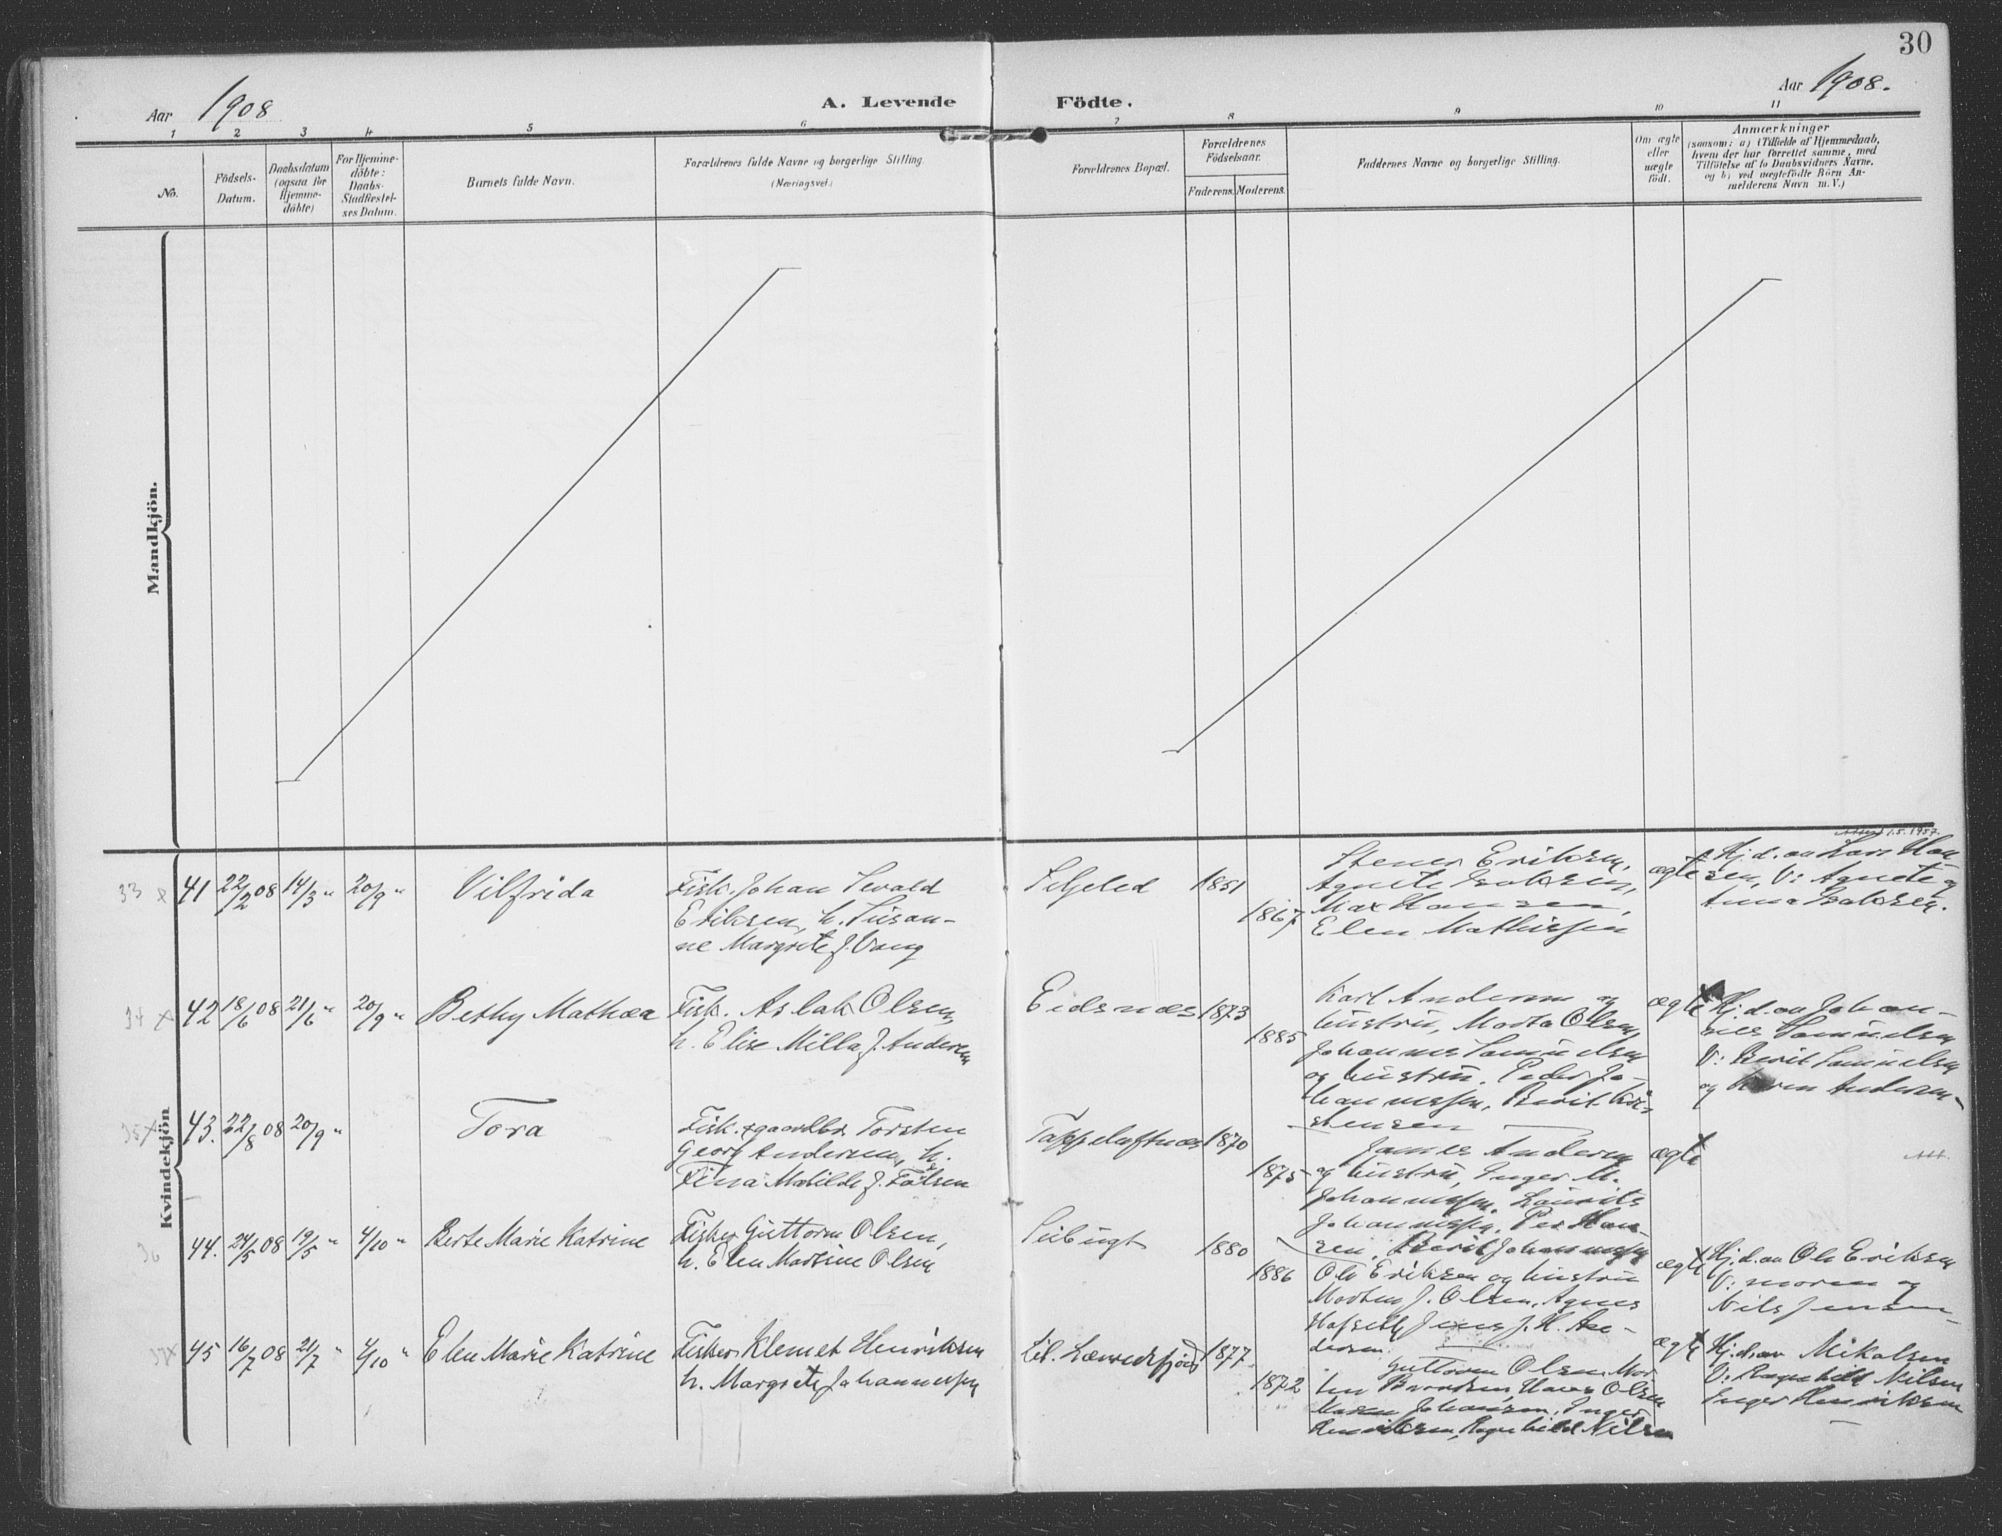 30
Aar 1908
A. Levende
Födte.
Aar 1908.
1 2 3 4 5 6 7 8 9 10 11
No.
Födsels-
Datum.
Daabsdatum
(ogsaa for
Hjemme-
döbte)
For Hjemme-
döbte:
Daabs-
Stadfæstel-
ses Datum.
Barnets fulde Navn.
Forældrenes fulde Navne og borgerlige Stilling.
(Næringsvei.)
Forældrenes Bopæl.
Forældrenes
Födselsaar.
Faderens. Moderens.
Faddernes Navne og borgerlige Stilling.
Om ægte
eller
uægte
födt.
Anmærkninger
(saasom: a) i Tilfælde af Hjemmedaab,
hvem der har forrettet samme, med
Tilföielse af to Daabsvidners Navne,
og b) ved uægtefödte Börn An-
melderens Navn m. V.)
Mandkjön.
Kvindekjön.
33 x 41 22/2 08 14/3 " 20/9 " Vilfrida
Fisk. Johan Sevald
Eriksen, h. Susan-
ne Margrete f. Vang
1851
1867
Stener Eriksen,
Agnete Isaksen,
Max Hansen,
Elen Mathissen
ægte
1.5.1957.
Hj. d. av Lars Han-
sen, V: Agnete og
Anna Isaksen.
34 x 42 18/6 08 21/6 " 20/9 " Bethy Mathea
Fisk. Aslak Olsen,
h. Elise Milla f. Andersen
Eidsnæs 1873
1885
Karl Andersen og
hustru, Marta Olsen,
Johannes Samuelsen
og hustru, Peder Jo-
hannessen, Berit Kri-
stensen
ægte
Hj. d. av Johan-
nes Samuelsen
V: Berit Samuelsen
og Karen Andersen
35 x 43. 22/8 08 20/9 " Tora
Fisk. & gaardbr. Torsten
Georg Andersen, h.
Fina Matilde f. Falsen
Tappeluftnæs 1870
1875
James Andersen
og hustru, Inger M.
Johannessen, Laurits
Johannessen, Per Han-
sen, Berit Johannessen
ægte
Att.
36 44. 24/5 08 19/5 " 4/10 " Berte Marie Katrine
Fisker Guttorm Olsen,
h. Elen Martine Olsen
1880
1886
Ole Eriksen og hustru
Morten J. Olsen, Agnes
Jens J. H. An-
dersen.
ægte
Hj. d. av Ole Eriksen
V: moren og
Nils Jensen
37 x 45 16/7 08 21/7 " 4/10 " Elen Marie Katrine
Fisker Klemet Henriksen
h. Margrete Johannessen
1877
1872
Guttorm Olsen, Mor-
ten Berntsen, Olsen
Johansen, Inger
Henriksen, Ragnhild Nilsen
ægte
Hj. d. av Mikalsen
V: Ragnhild Nilsen
Inger Henriksen